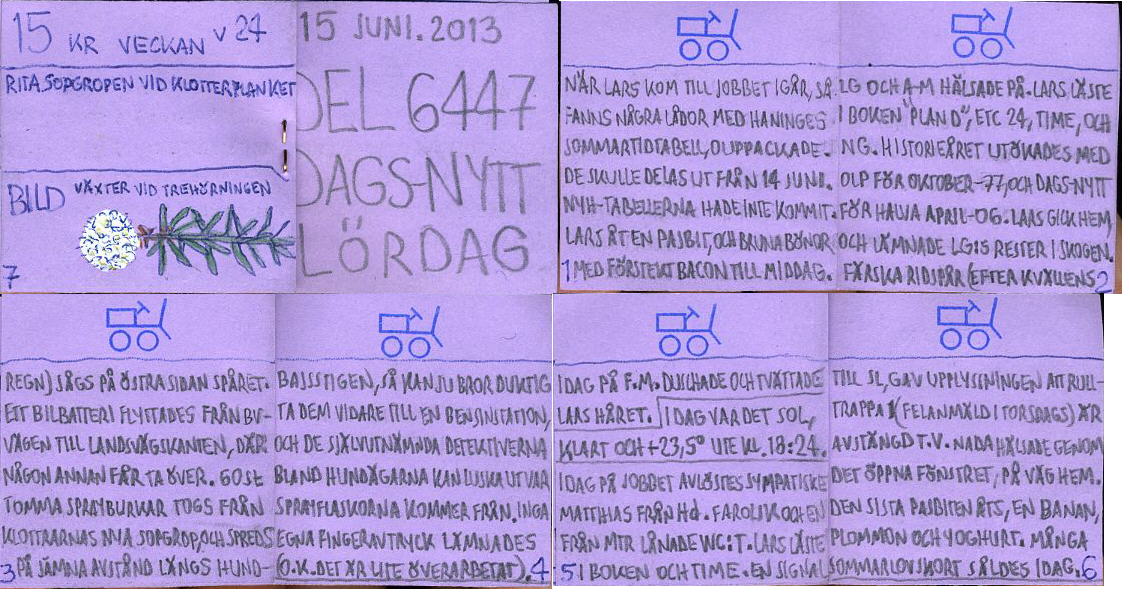 15 KR VECKAN V 24
RITA SOPGROPEN VID KLOTTERPLANKET
BILD VÄXTER VID TREHÖRNINGEN
7
15 JUNI. 2013
DEL 6447
DAGS-NYTT
LÖRDAG
NÄR LARS KOM TILL JOBBET IGÅR, SÅ
FANNS NÅGRA LÅDOR MED HANINGES
SOMMARTIDTABELL, OUPPACKADE.
DE SKULLE DELAS UT FRÅN 14 JUNI.
NYH-TABELLERNA HADE INTE KOMMIT.
LARS ÅT EN PAJBIT, OCH BRUNA BÖNOR
1 MED FÖRSTEKT BACON TILL MIDDAG.
LG OCH A-M HÄLSADE PÅ. LARS LÄSTE
I BOKEN "PLAN D", ETC 24, TIME, OCH
NG. HISTORIERÅET UTÖKADES MED
OLP FÖR OKTOBER -77, OCH DAGS-NYTT
FÖR HALVA APRIL -06. LARS GICK HEM,
OCH LÄMNADE LG:S RESTER I SKOGEN.
FÄRSKA RIDSPÅR (EFTER KVÄLLENS 2
REGN) SÅGS PÅ ÖSTRA SIDAN SPÅRET.
ETT BILBATTERI FLYTTADES FRÅN BV-
VÄGEN TILL LANDSVÄGSKANTEN, DÄR
NÅGON ANNAN FÅR TA ÖVER. 60 St
TOMMA SPRAYBURKAR TOGS FRÅN
KLOTTRARNAS NYA SOPGROP, OCH SPREDS
3 PÅ JÄMNA AVSTÅND LÄNGS HUND-
BAJSSTIGEN, SÅ KAN JU BROR DUKTIG
TA DEM VIDARE TILL EN BENSINSTATION,
OCH DE SJÄLVUTNÄMNDA DETEKTIVERNA
BLAND HUNDÄGARNA KAN LUSKA UT VAR
SPRAYFLASKORNA KOMMER FRÅN. INGA
EGNA FINGERAVTRYCK LÄMNADES
(O.K. DET ÄR LITE ÖVERARBETAT). 4
IDAG PÅ F.M. DUSCHADE OCH TVÄTTADE
LARS HÅRET. IDAG VAR DET SOL,
KLART OCH +23,5° UTE KL. 18:24.
IDAG PÅ JOBBET AVLÖSTES SYMPATISKE
MATTHIAS FRÅN Hd. FAROUK OCH EN
FRÅN MTR LÅNADE WC:T. LARS LÄSTE
5 I BOKEN OCH TIME. EN SIGNAL
TILL SL, GAV UPPLYSNINGEN ATT RULL-
TRAPPA 1 (FELANMÄLD I TORSDAGS) ÄR
AVSTÄNGD T.V. NADA HÄLSADE GENOM
DET ÖPPNA FÖNSTRET, PÅ VÄG HEM.
DEN SISTA PAJBITEN ÅTS, EN BANAN,
PLOMMON OCH YOGHURT. MÅNGA
SOMMARLOVSKORT SÅLDES IDAG. 6